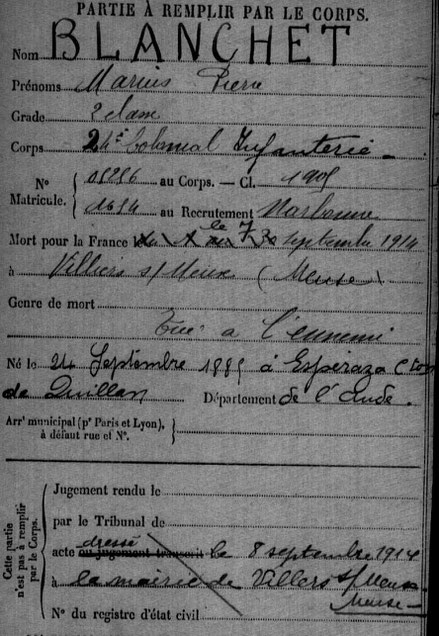 PARTIE À REMPLIR PAR LE CORPS.
Nom BLANCHET
Prénoms Marius Pierre
Grade 2 classe
Corps 24e Colonial Infanterie
N° Matricule. { 08296 au Corps. — Cl. 1905
1694 au Recrutement Narbonne
Mort pour la France le 7 septembre 1914
à Villiers s/Meux (Meuse)
Genre de mort
Tué à l'ennemi
Né le 24 Septembre 1885 à Espéraza Cton
de Quillan Département de l'Aude.
Arrt municipal (pr Paris et Lyon), à défaut rue et N°.
Cette partie n'est pas à remplir par le Corps.
Jugement rendu le
par le Tribunal de
acte ou jugement transcrit dressé le 8 septembre 1914
à la mairie de Villers s/Meux
Meuse
N° du registre d'état civil